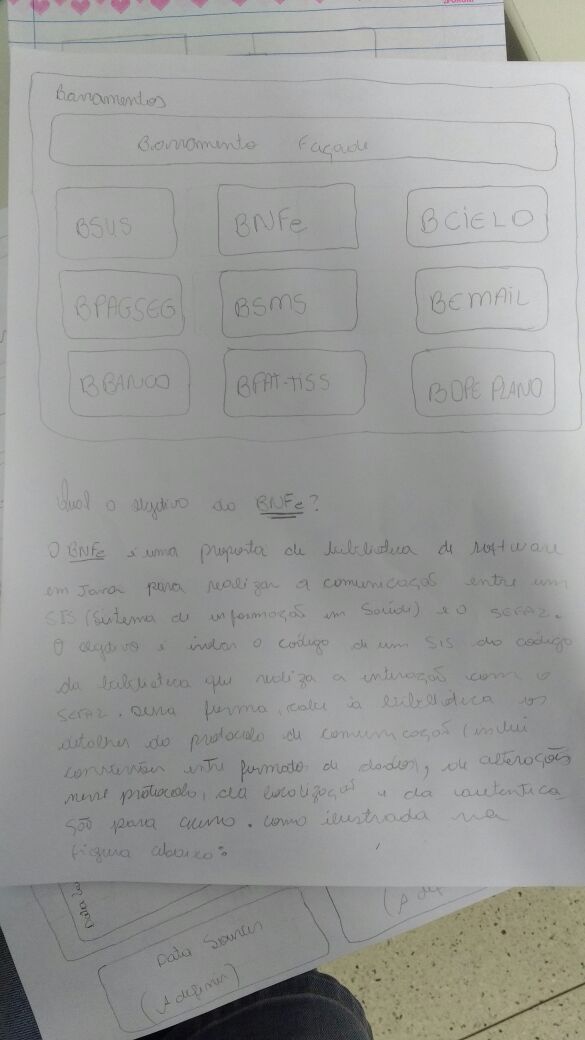 Barramentos
Barramento Façade
BSUS BNFe BCIELO
BPAGSEG BSMS BEMAIL
BBANCO BFAT-TISS BOPE PLANO
Qual o objetivo do BNFe?
O BNFe é uma proposta de biblioteca de software
em Java para realizar a comunicação entre um
SIS (Sistema de informação em Saúde) e o SEFAZ.
O objetivo é isolar o código de um SIS do código
da biblioteca que realiza a interação com o
SEFAZ. Dessa forma, cabe à biblioteca os
detalhes do protocolo de comunicação (inclui
conversão entre formato de dados), de alterações
nesse protocolo, da localização e da autentica
ção para acesso. como ilustrada na
figura abaixo:
Data Sources
(A definir)